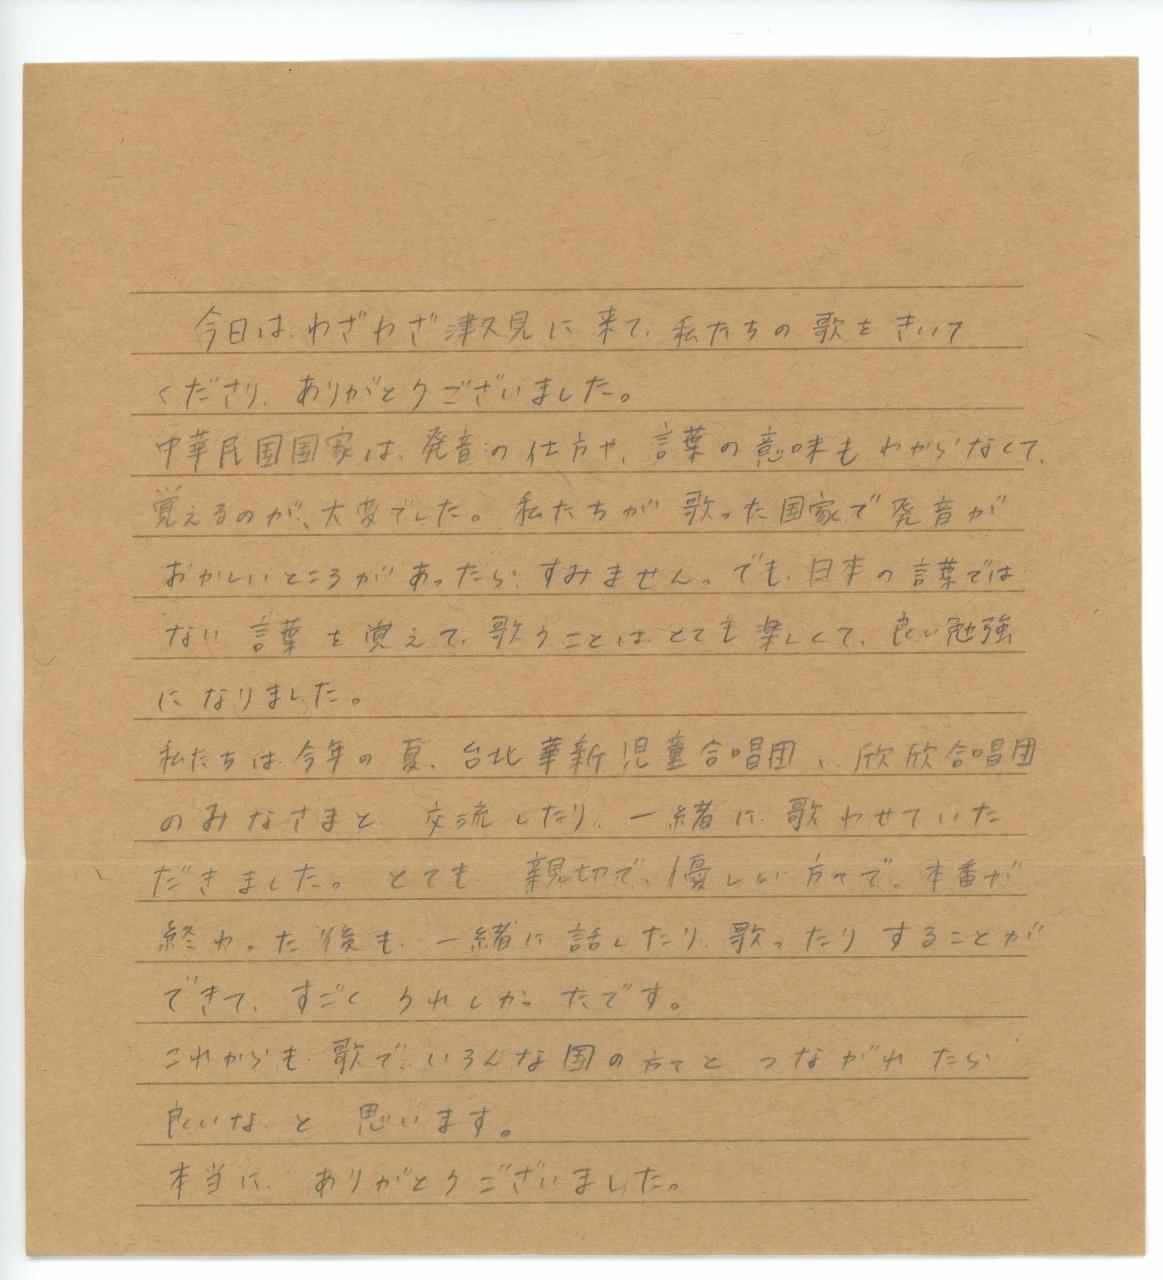 今日は、わざわざ津久見に来て、私たちの歌をきいて
くださり、ありがとうございました。
中華民国国家は、発音の仕方や、言葉の意味もわからなくて、
覚えるのが、大変でした。私たちが歌った国家で発音が
おかしいところがあったら、すみません。でも、日本の言葉では
ない言葉を覚えて、歌うことは、とても楽しくて、良い勉強
になりました。
私たちは、今年の夏、台北華新児童合唱団、欣欣合唱団
のみなさまと、交流したり、一緒に歌わせていた
だきました。とても、親切で、優しい方々で、本番が
終わった後も、一緒に話したり、歌ったりすることが
できて、すごくうれしかったです。
これからも、歌で、いろんな国の方々とつながれたら
良いな、と思います。
本当に、ありがとうございました。